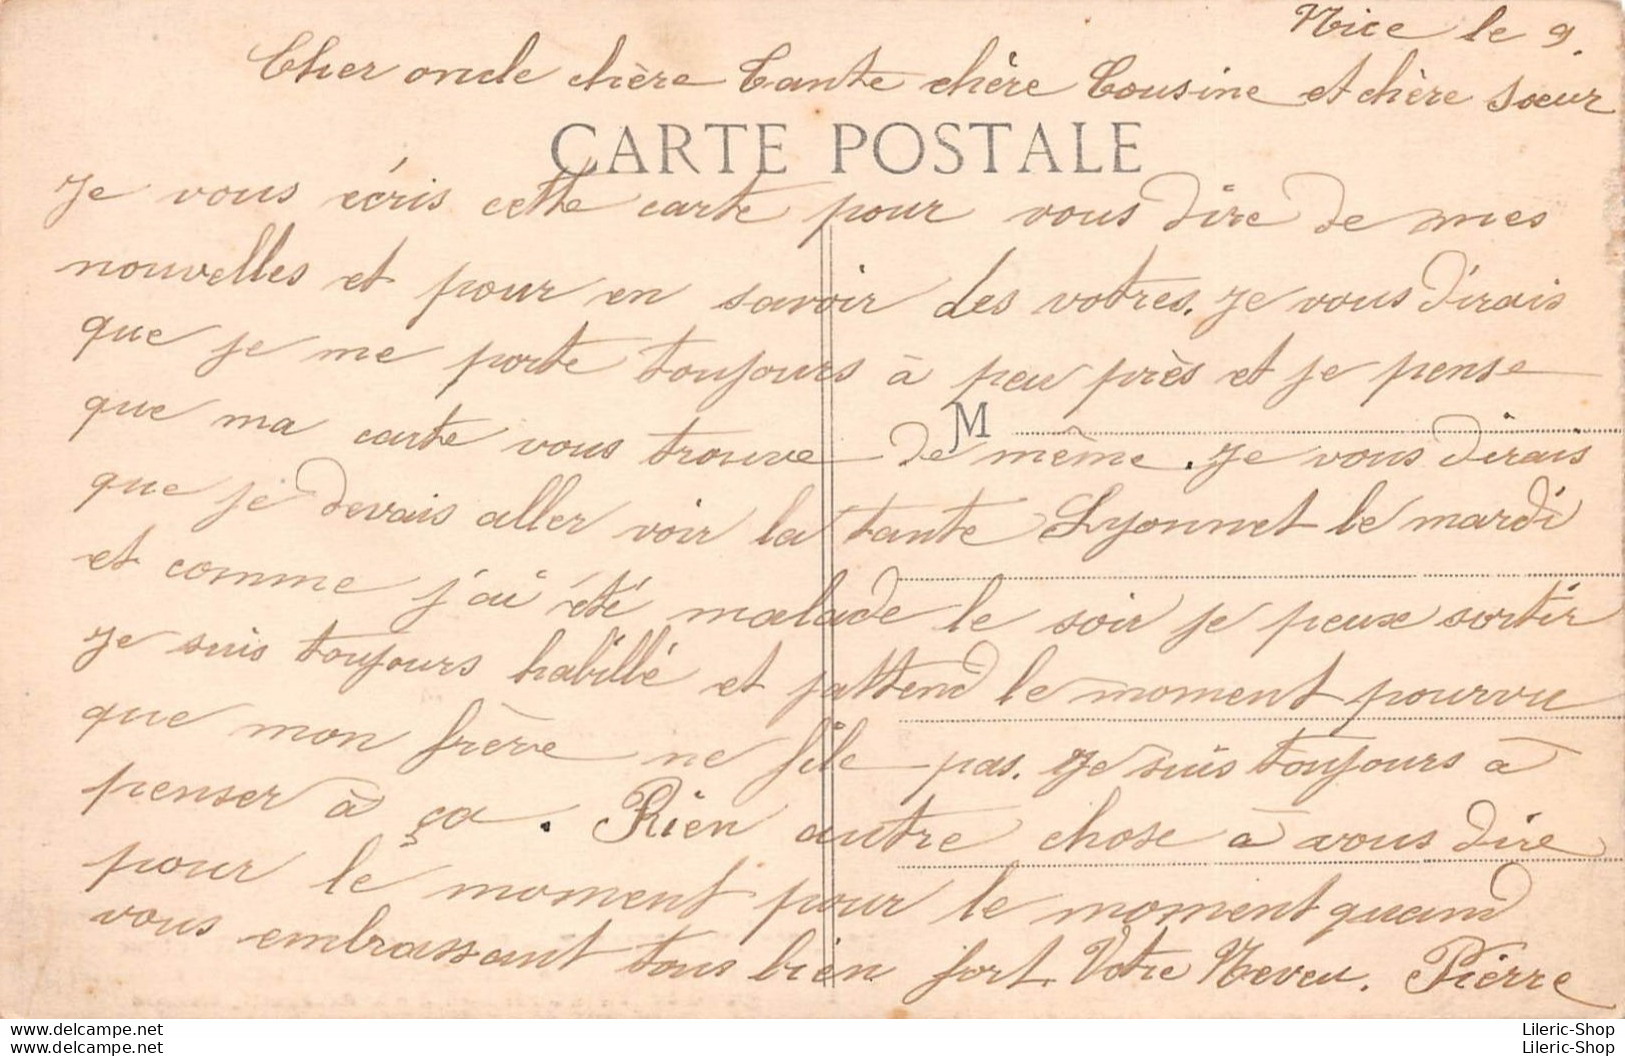 Nice le 9.
Cher oncle chère Tante chère Cousine et chère sœur
CARTE POSTALE
Je vous écris cette carte pour vous dire de mes
nouvelles et pour en savoir des votres. Je vous dirais
que je me porte toujours à peu près et je pense
que ma carte vous trouve de même. Je vous dirais
M
que je devais aller voir la tante Lyonnet le mardi
et comme j'ai été malade le soir je peux sortir
Je suis toujours habillé et j'attend le moment pourvu
que mon frère ne file pas. Je suis toujours à
penser à ça. Rien autre chose à vous dire
pour le moment pour le moment quand
vous embrassant tous bien fort. Votre Neveu. Pierre
www.delcampe.net
Lileric-Shop
www.delcampe.net
Lileric-Shop